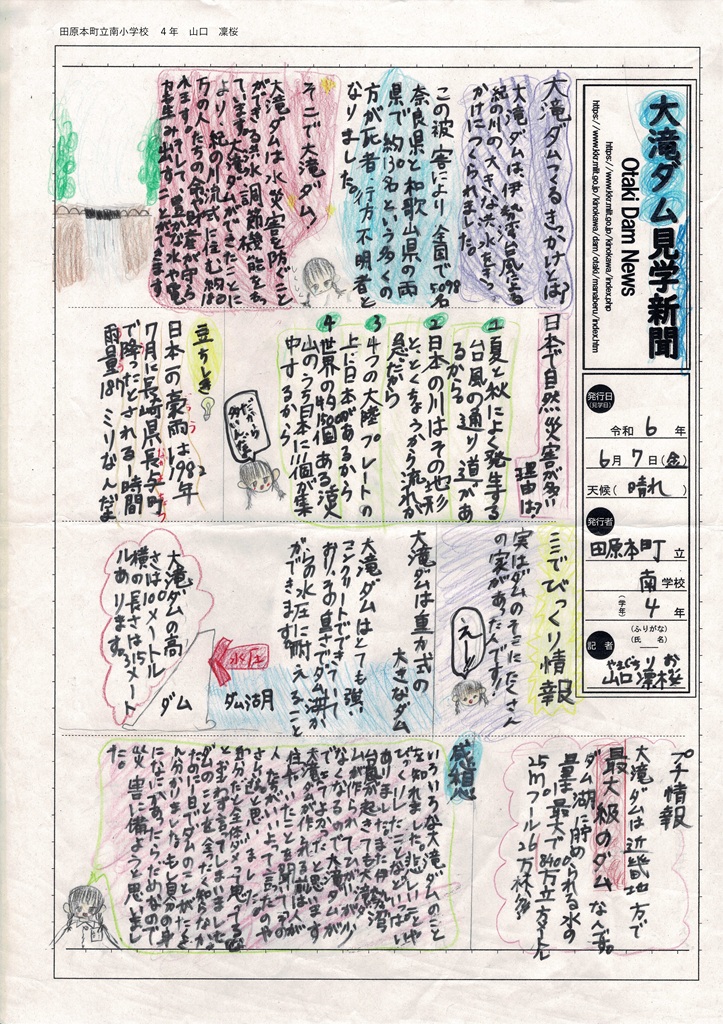 田原本町立南小学校　4年　山口　凜桜
大滝ダム見学新聞
Otaki Dam News
https://www.kkr.mlit.go.jp/kinokawa/index.php
https://www.kkr.mlit.go.jp/kinokawa/dam/otaki/manaberu/index.htm
発行日
(見学日)
令和 6 年
6月 7日(金)
天候 ( 晴れ )
発行者
田原本町 立
南 学校
(学年) 4 年
記者
(ふりがな)
(氏 名)
やまぐち りお
山口 凜桜
大滝ダムつくるきっかけとは?
大滝ダムは、伊勢湾台風による
紀の川の大きな洪水をきっ
かけにつくられました。
この被害により全国で5098名
奈良県と和歌山県の両
県で約130名という多くの
方が死者・行方不明者と
なりました。
そこで大滝ダム
大滝ダムは水災害を防ぐこと
ができる洪水調節機能をもっ
ています。大滝ダムができたことに
より、紀の川流域に住む約
万の人たちの命や財産が守ら
れます。そして、豊かな水や電
力を生み出すことができます
日本で自然災害が多い
理由は?
1 夏と秋によく発生する
台風の通り道があ
るから
2 日本の川はその地形
と、とくちょうから流れが
急だから
3 4つの大陸プレートの
上に日本があるから
4 世界の約1500個ある活火
山のうち日本に111個が集
中するから
だから
多いんだよ
豆ちしき
日本一の豪雨は1982年
7月に長崎県長与町
で降ったとされる1時間
雨量187ミリなんだよ
ここでびっくり情報
実はダムのそこにたくさん
の実があったんです!
えー!!
大滝ダムは重力式の
大きなダム
大滝ダムはとても強い
コンクリートでできていて
おり、その重さでダム湖か
らの水圧に耐えること
ができます。
水圧
ダム湖
ダム
大滝ダムの高
さは100メートル
横の長さは315メート
ルあります。
プチ情報
大滝ダムは近畿地方で
最大級のダムなんです。
ダム湖に貯められる水の
量は最大で8400万立方メートル
25mプール26万杯分
感想
いろいろな大滝ダムのこと
を知れました。悲しいことや
びっくりしたことなどいっぱい
ありました。また伊勢湾
台風が起きても大滝ダ
ムが作られてひがいが少
なくなるので大滝ダムが
できてよかったと思います
大滝ダムが作られる前は人が
住んでいたことを聞いてその
人たちがいよって言ったのや
さしいと思いました。